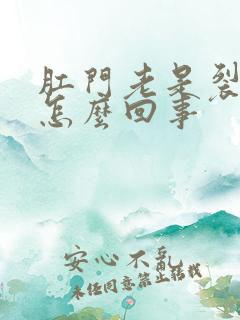 肛門老是裂
怎麼回事
安心不亂
未经同意禁止转载